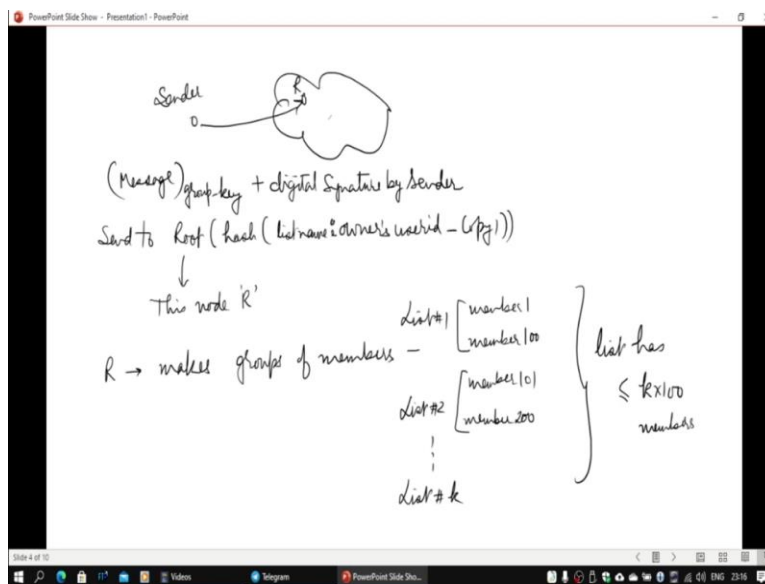 PowerPoint Slide Show - Presentation1 - PowerPoint
Sender
R
(Message)group-key + digital Signature by Sender
Send to Root (hash (listname:owner's userid - Copy1))
This node 'R'
R → makes groups of members -
List #1
member 1
member 100
List #2
member 101
member 200
List # k
list has
≤ k×100
members
Slide 4 of 10
Videos
Telegram
PowerPoint Slide Sho...
ENG
23:16